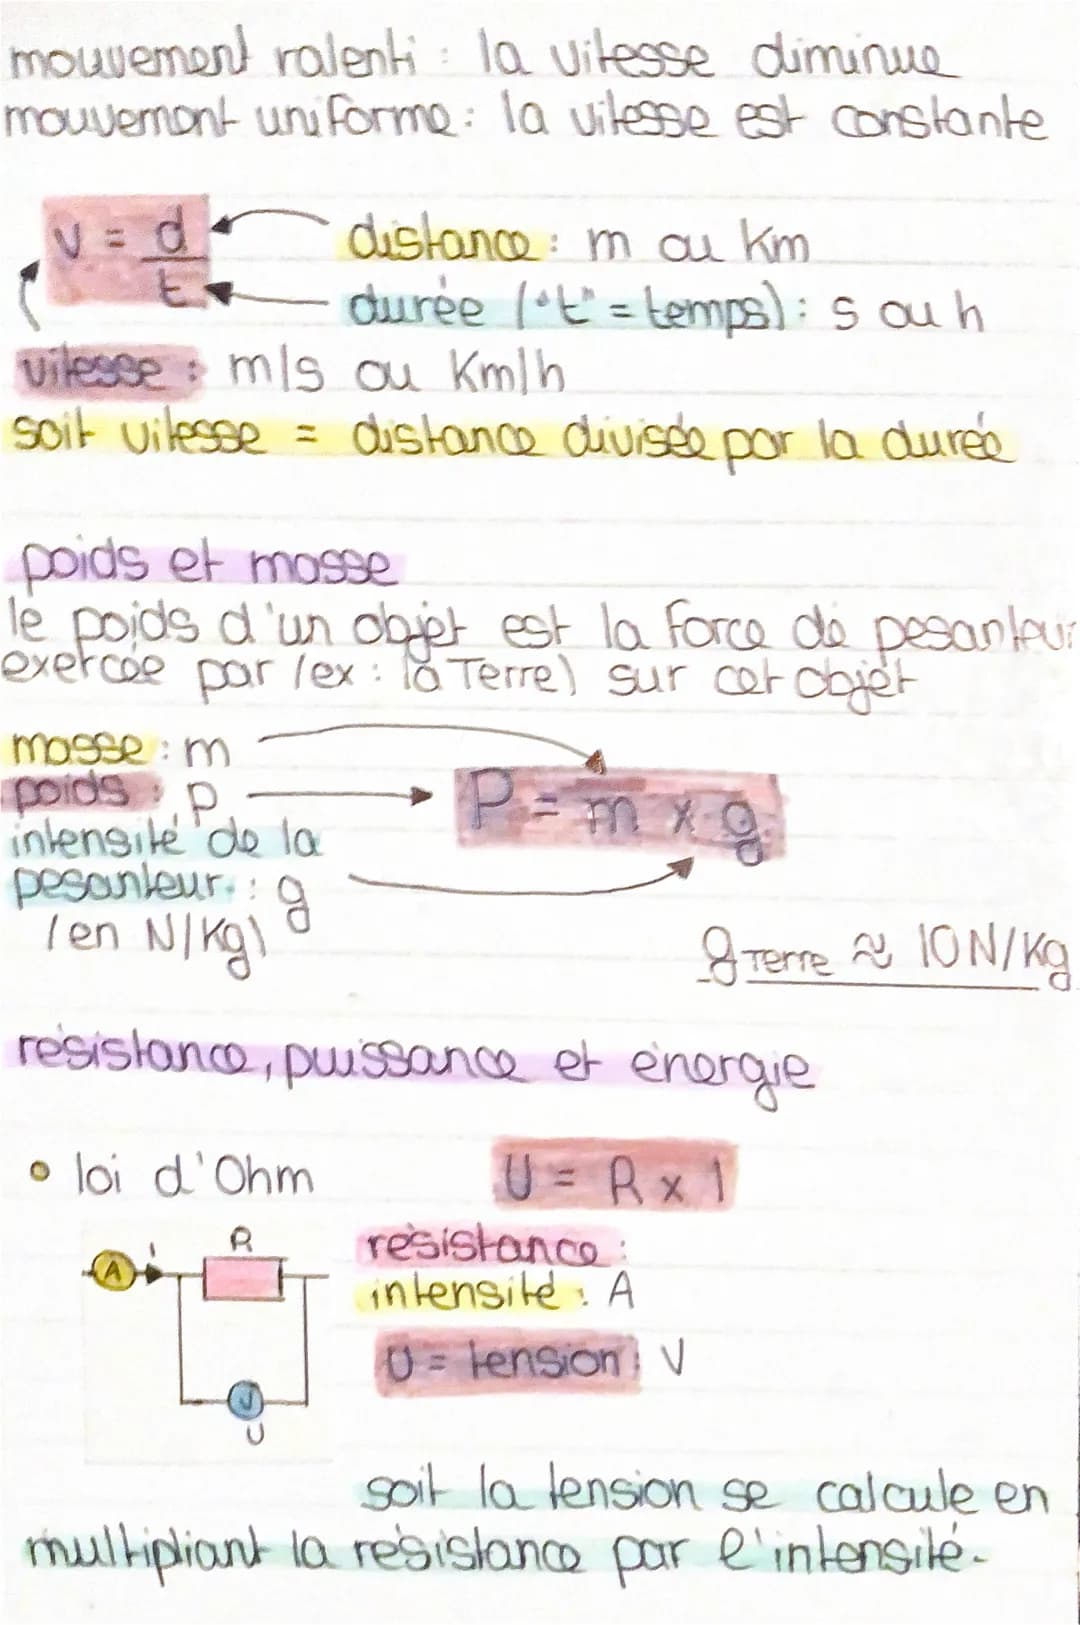 mouvement ralenti : la vitesse diminue
mouvement uniforme : la vitesse est constante
v = d/t
distance : m ou Km
durée ("t" = temps) : s ou h
vitesse : m/s ou Km/h
soit vitesse = distance divisée par la durée
poids et masse
le poids d'un objet est la force de pesanteur
exercée par (ex : la Terre) sur cet objet
masse : m
poids : P
P = m x g
intensité de la
pesanteur : g
(en N/Kg)
g Terre ≈ 10 N/Kg
résistance, puissance et énergie
• loi d'Ohm
U = R x I
A i R
résistance :
intensité : A
U = tension : V
V
U
soit la tension se calcule en
multipliant la résistance par l'intensité.